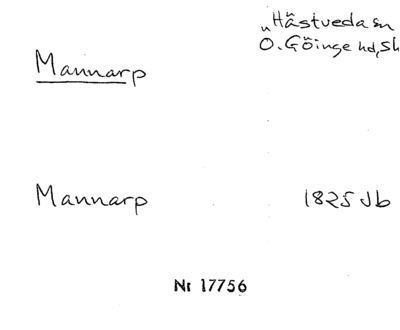 "Hästveda sn
Ö. Göinge hd, Sk
Mannarp
Mannarp 1825 Jb
Nr 17756